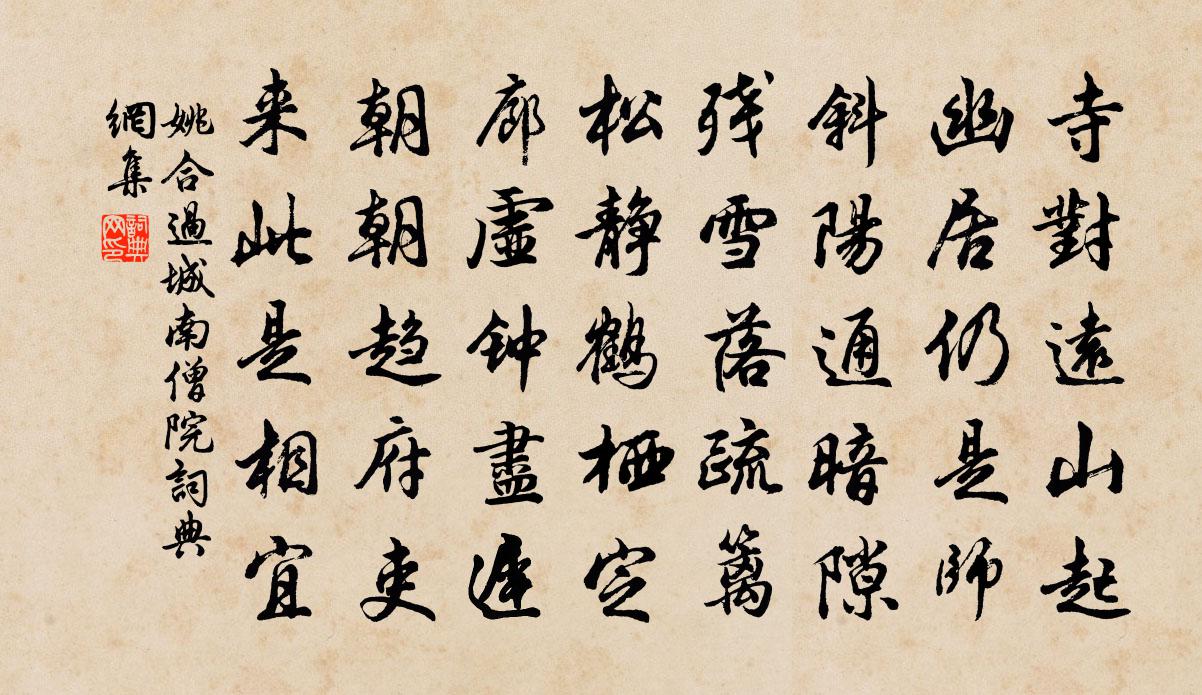 寺對遠山起
幽居仍是師
斜陽通暗隙
残雪落疏篱
松静鹤栖定
廊虚钟盡遲
朝朝趋府吏
来此是相宜
姚合過城南僧院詞典
網集
詞典网印